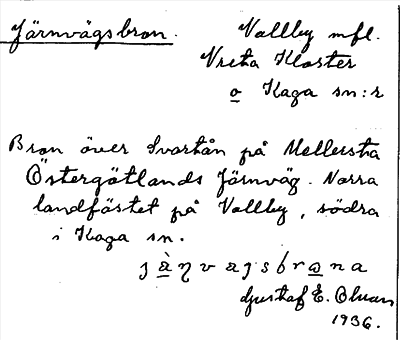 Järnvägsbron. Vallby mfl.
Vreta Kloster
o Kaga sn:r
Bron över Svartån på Mellersta
Östergötlands Järnväg. Norra
landfästet på Vallby, södra
i Kaga sn.
Gustaf E. 
1936.